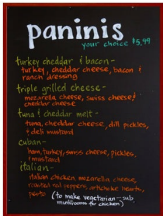 paninis
your choice $5.99
turkey cheddar & bacon-
turkey, cheddar cheese, bacon &
ranch dressing
triple grilled cheese-
mozzarella cheese, swiss cheese &
cheddar cheese
tuna & cheddar melt-
tuna, cheddar cheese, dill pickles,
& deli mustard
cuban-
ham, turkey, swiss cheese, pickles,
& mustard
italian-
italian chicken mozzarella cheese,
roasted red peppers, artichoke hearts,
pesto (to make vegetarian - sub
mushrooms for chicken)